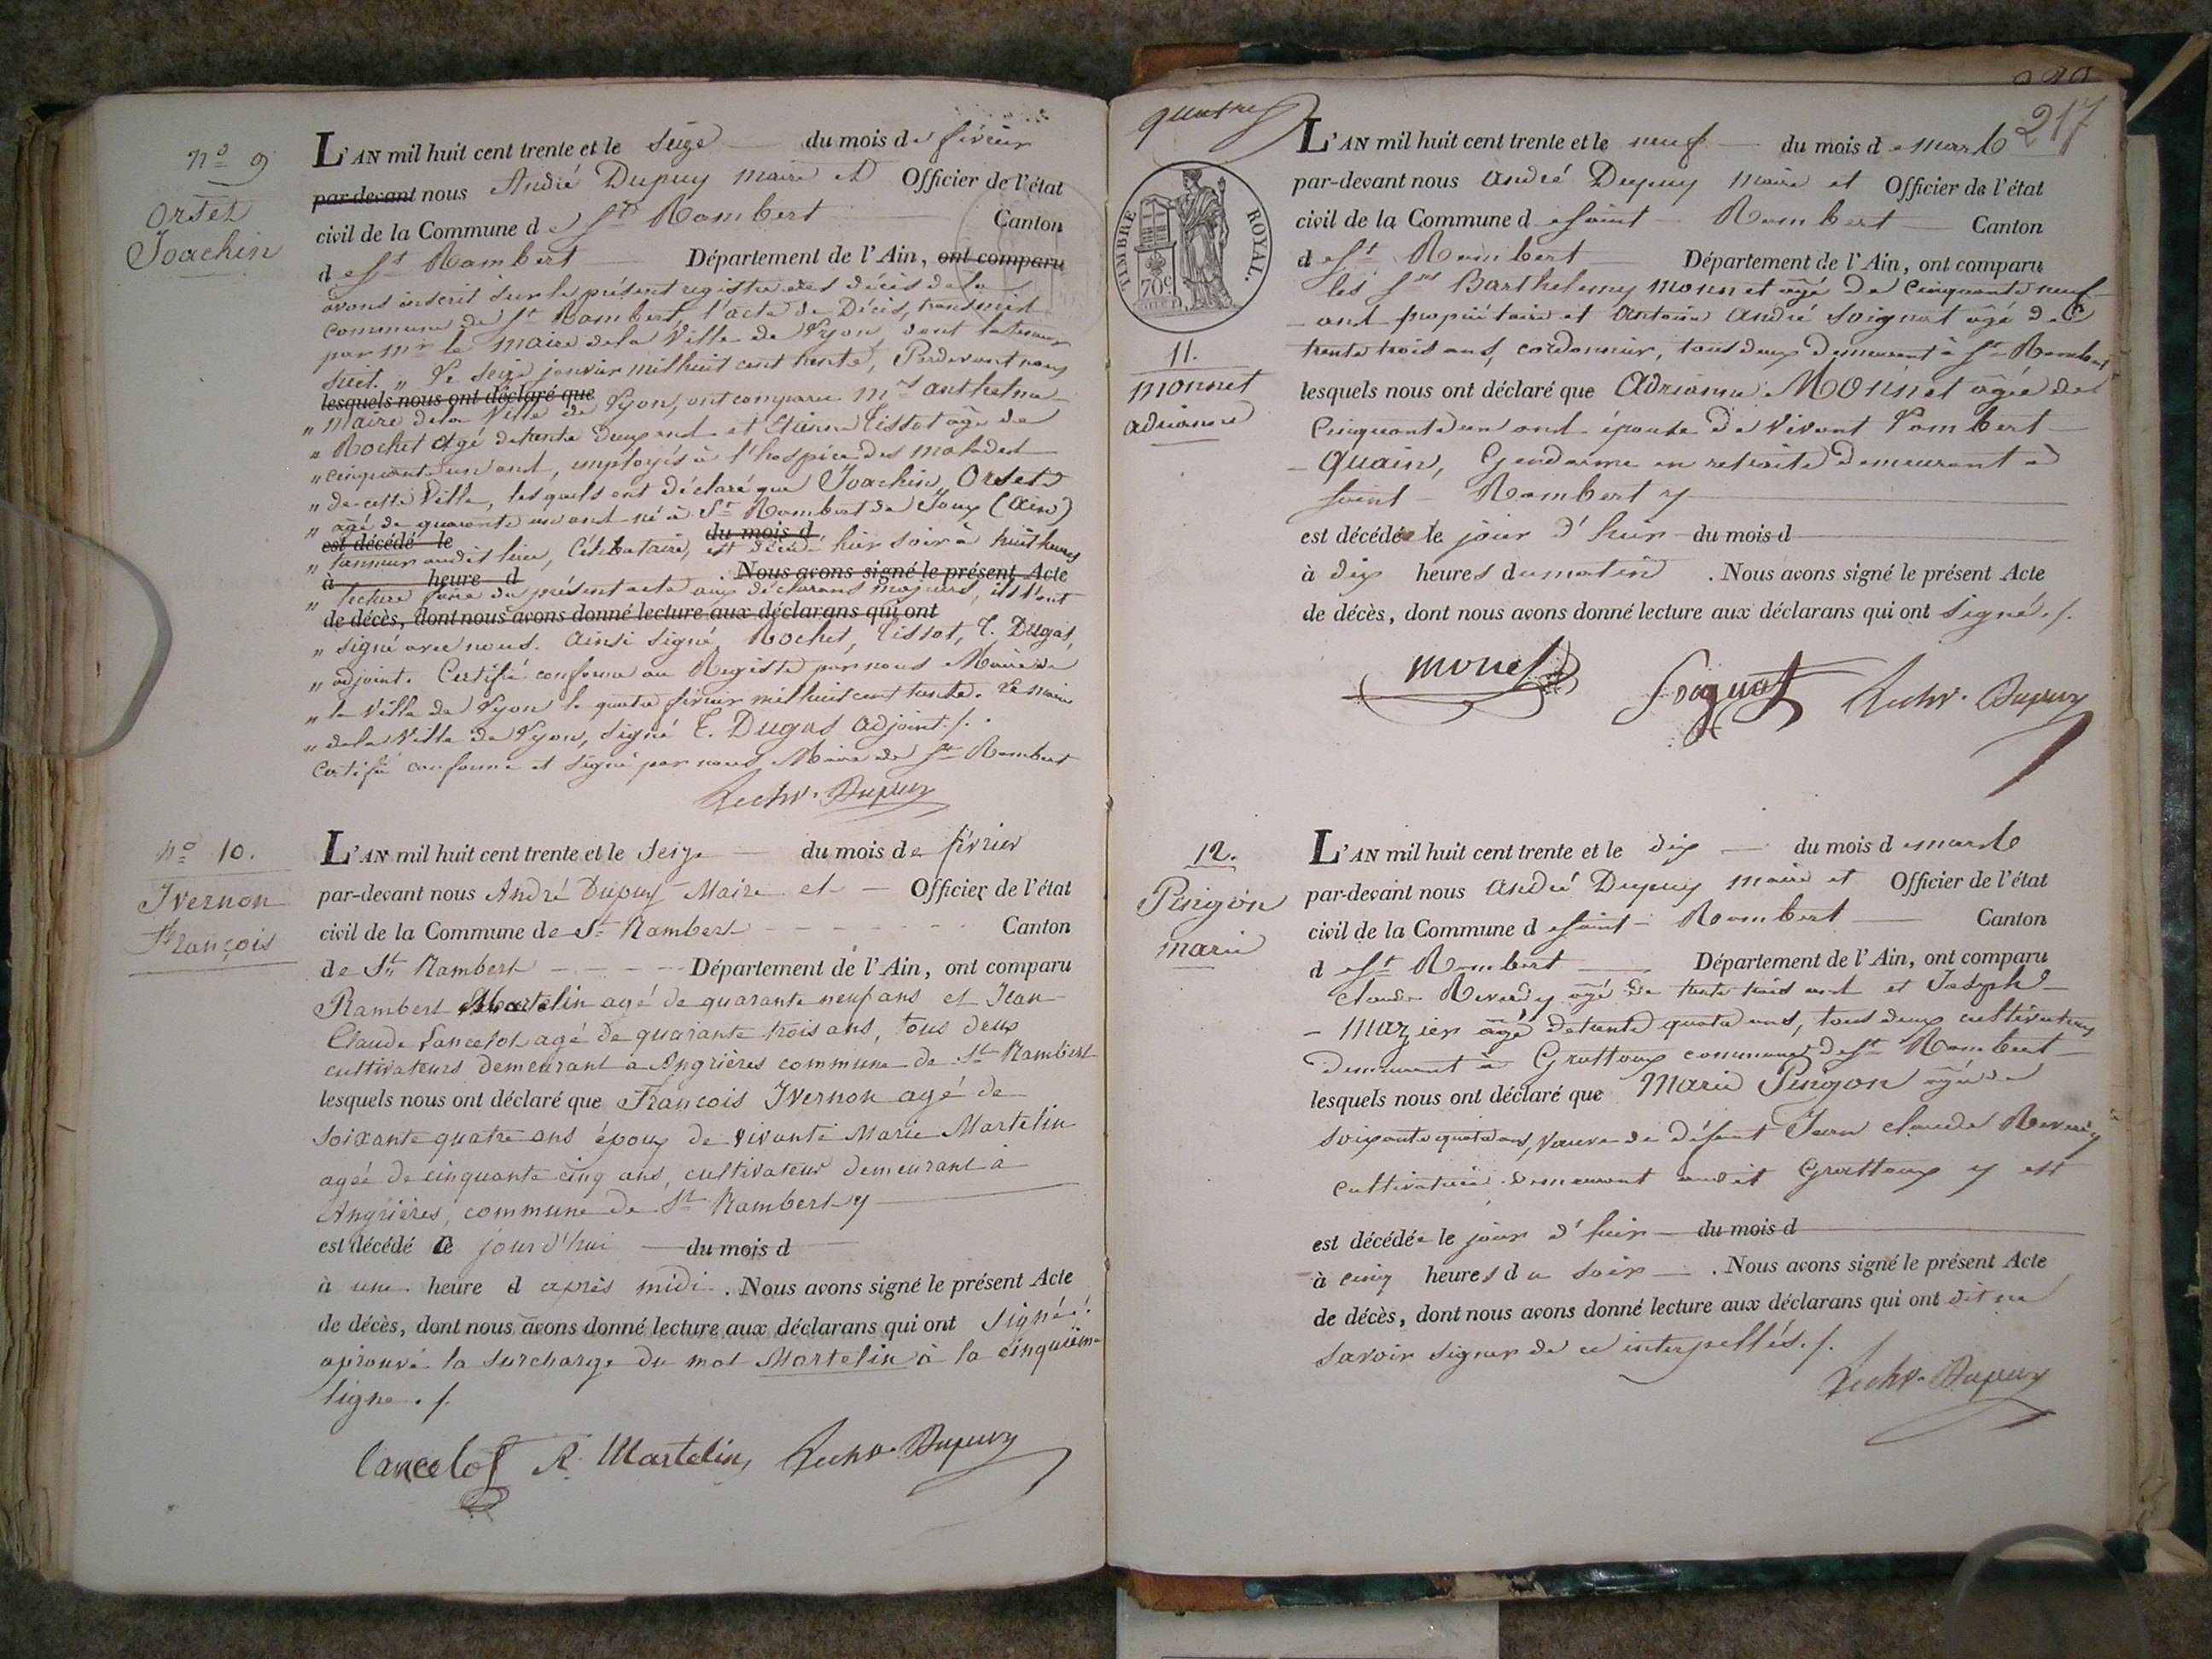 nº 9
Orset
Joachin
L'AN mil huit cent trente et le seize du mois de février
par-devant nous André Dupuy maire et Officier de l'état
civil de la Commune de St Rambert Canton
de St Rambert Département de l'Ain, ont comparu
avons inscrit sur le présent registre des décès de la
commune de St Rambert, l'acte de Décès, transmis
par mr le maire de la Ville de Lyon, dont la teneur
suit. „ Le seize janvier mil huit cent trente, Pardevant nous
lesquels nous ont déclaré que
„ maire de la Ville de Lyon, ont comparu mrs anthelme
„ Rochet agé de trente deux ans et Etienne Tissot âgé de
„ cinquante un ans, employés à l'hospice des malades
„ de cette Ville, lesquels ont déclaré que Joachin Orset
„ âgé de quarante un ans né à St Rambert de Joux (Ain)
est décédé le du mois d
„ tanneur audit lieu, Célibataire, est décédé hier soir à huit heures
à heure d . Nous avons signé le présent Acte
„ lecture faite du présent acte aux déclarans majeurs, ils l'ont
de décès, dont nous avons donné lecture aux déclarans qui ont
„ signé avec nous. Ainsi signé Rochet, Tissot, E. Dugas,
„ adjoint. Certifié conforme au Registre par nous Maire de
„ la Ville de Lyon le quatre février mil huit cent trente. Le maire
„ de la Ville de Lyon, signé E. Dugas adjoint ./.
Certifié conforme et signé par nous Maire de St Rambert
Dupuy
nº 10.
Ivernon
François
L'AN mil huit cent trente et le seize du mois de février
par-devant nous André Dupuy Maire et Officier de l'état
civil de la Commune de St Rambert Canton
de St Rambert Département de l'Ain, ont comparu
Rambert Martelin agé de quarante neuf ans et Jean
Claude Lancelot agé de quarante trois ans, tous deux
cultivateurs demeurant à Angrières commune de St Rambert
lesquels nous ont déclaré que François Ivernon agé de
soixante quatre ans époux de vivante Marie Martelin
agée de cinquante cinq ans, cultivateur demeurant à
Angrières, commune de St Rambert y
est décédé le jourd'hui du mois d
à une heure d après midi. Nous avons signé le présent Acte
de décès, dont nous avons donné lecture aux déclarans qui ont signé.
aprouvé la surcharge du mot Martelin à la cinquième
ligne ./.
Lancelot R. Martelin Dupuy
quatre
217
TIMBRE ROYAL.
70c
11.
Monnet
adrianne
L'AN mil huit cent trente et le neuf du mois de mars
par-devant nous André Dupuy maire et Officier de l'état
civil de la Commune de saint Rambert Canton
de St Rambert Département de l'Ain, ont comparu
les srs Barthelemy Monnet agé de cinquante neuf
ans propriétaire et Antoine André Soignat agé de
trente trois ans, cordonnier, tous deux demeurant à St Rambert
lesquels nous ont déclaré que Adrianne Monnet agée de
Cinquante un ans épouse de vivant Lambert
Quain, Gendarme en retraite demeurant à
saint Rambert y
est décédée le jour d'hier du mois d
à dix heures du matin . Nous avons signé le présent Acte
de décès, dont nous avons donné lecture aux déclarans qui ont signé ./.
monet Soignat Dupuy
12.
Pingon
marie
L'AN mil huit cent trente et le dix du mois de mars
par-devant nous André Dupuy maire et Officier de l'état
civil de la Commune de saint Rambert Canton
de St Rambert Département de l'Ain, ont comparu
Claude Reverdy agé de trente trois ans et Joseph
Mazier agé de trente quatre ans, tous deux cultivateurs
demeurant à Grattoux commune de St Rambert
lesquels nous ont déclaré que Marie Pingon agée de
soixante quatre ans, veuve de défunt Jean Claude Reverdy
cultivatrice demeurant audit Grattoux y est
est décédée le jour d'hier du mois d
à cinq heures du soir . Nous avons signé le présent Acte
de décès, dont nous avons donné lecture aux déclarans qui ont dit ne
savoir signer de ce interpellés ./.
Dupuy